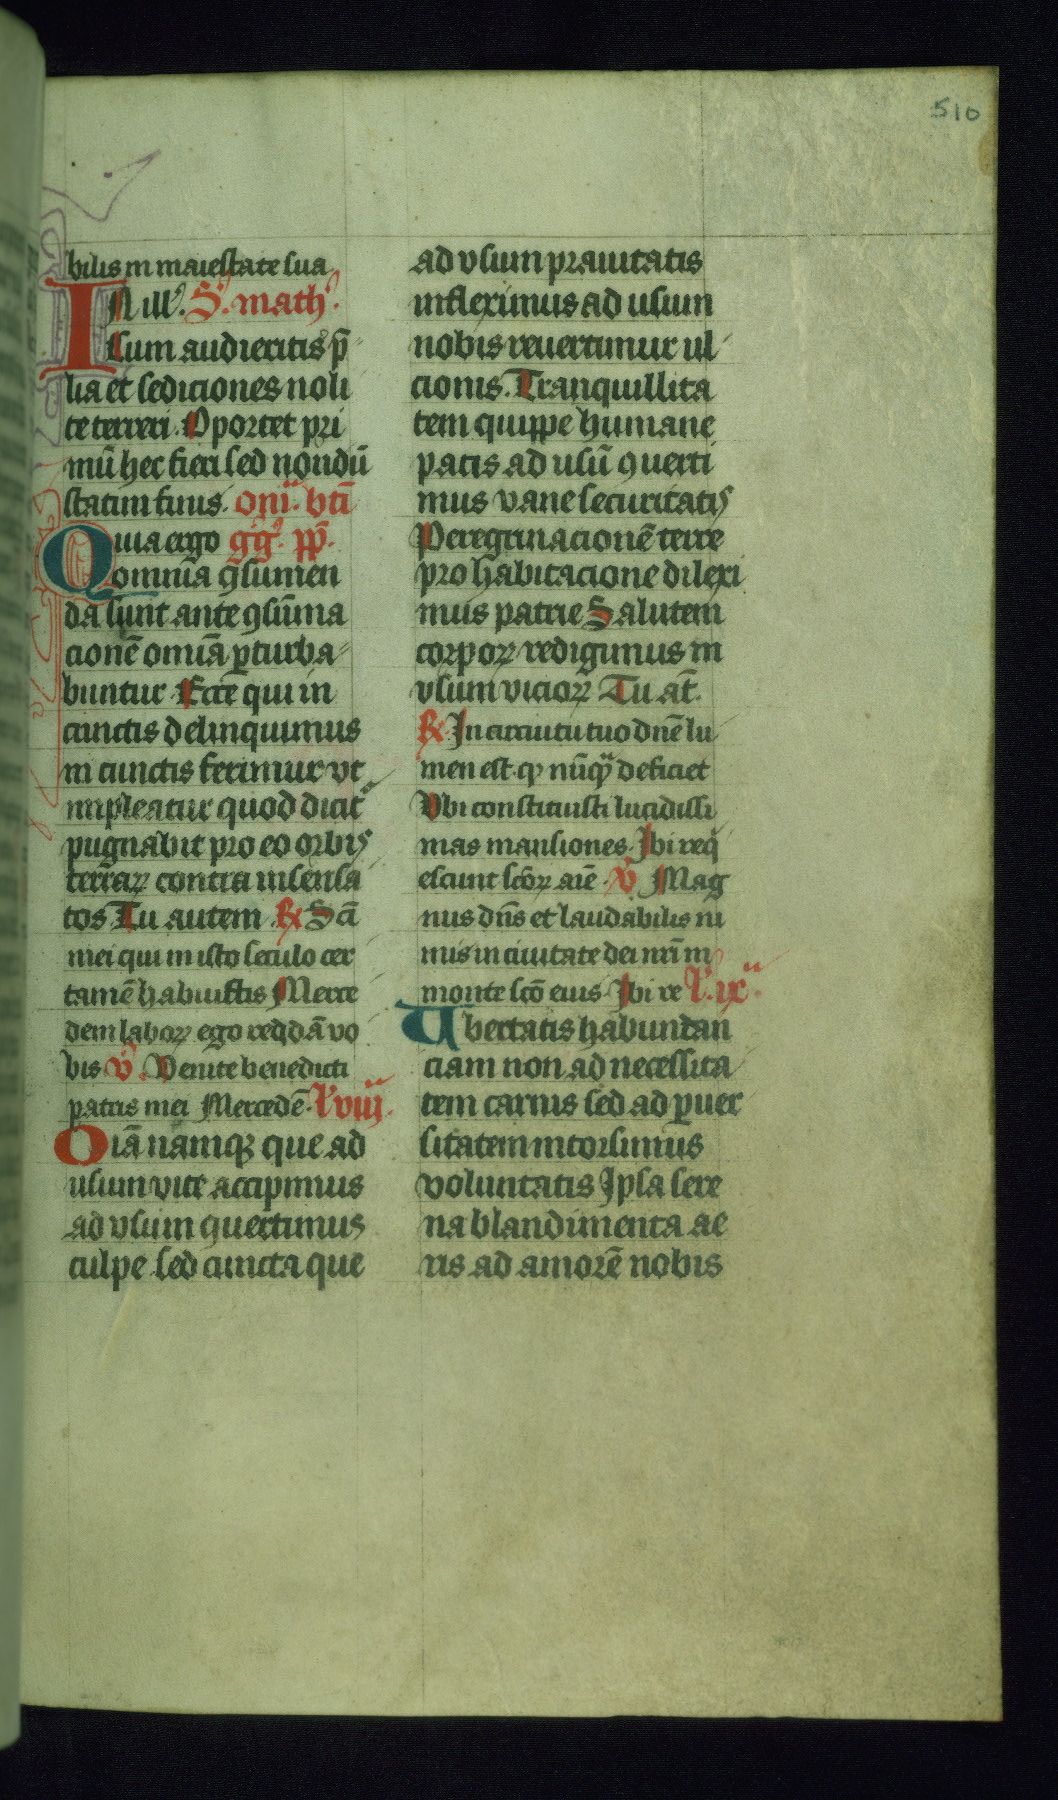 510
bilis in maiestate sua
IN ill'. S'. math'.
Cum audieritis p̄
lia et sediciones noli
te terreri. Oportet pri
mū hec fieri sed nondū
statim finis. om̄. bti
Quia ergo g̾g̾. pp̄.
omnia ꝯsumen
da sunt ante ꝯsūma
cionē omīa ꝑturba
buntur. Ecce qui in
cunctis delinquimus
in cunctis ferimur vt
impleatur quod dicit᷑
pugnabit pro eo orbis
terrarꝝ contra insensa
tos Tu autem ℞ Scī
mei qui in isto seculo cer
tamē habuistis Merce
dem laborꝝ ego reddā vo
bis ℣. Venite benedicti
patris mei Mercedē. l'. viij.
Oīa namqꝫ que ad
usum vite accipimus
ad vsum ꝯuertimus
culpe sed cuncta que
ad vsum prauitatis
inflexinus ad usum
nobis reuertuntur ul
cionis. Tranquillita
tem quippe humane
pacis ad usū ꝯuerti
mus vane securitatis
Peregrinacionē terre
pro habitacione dilexi
mus patrie Salutem
corporꝝ redigimus in
vsum viciorꝝ Tu at̄.
℞. In circuitu tuo dn̄e lu
men est ꝙ nūqͣ deficiet
Vbi constituisti lucidissi
mas mansiones. Ibi req̇
escunt scōrꝝ aīe. ℣ Mag
nus dn̄s et laudabilis ni
mis in ciuitate dei nr̄i in
monte scō eius. Ibi re l'. ix.
Vbertatis habundan
ciam non ad necessita
tem carnis sed ad ꝑuer
sitatem intorsimus
voluntatis Ipsa sere
na blandimenta ae
ris ad amorē nobis